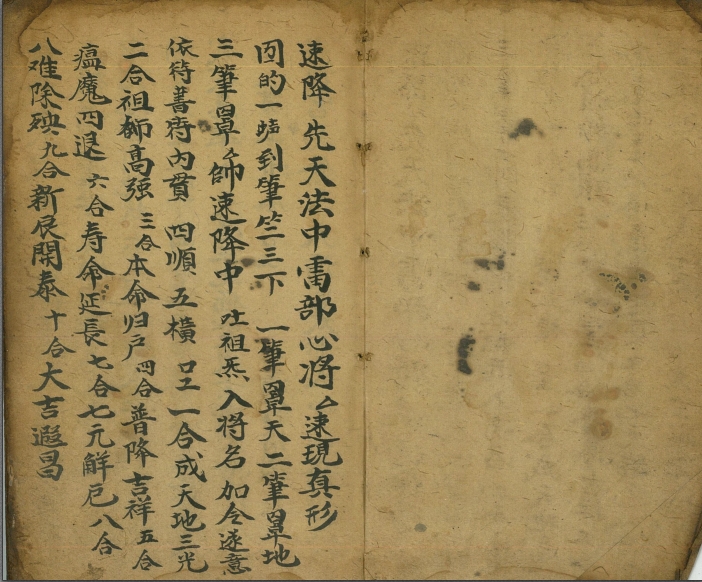 速降 先天法中雷部心將厶速現真形
的一 到筆竺三下 一筆罩天二筆罩地
三筆罩厶師速降中 吐祖炁入將名加令遂意
依符書符內貫 四順 五橫 口工一合成天地三光
二合祖師高强三合本命归户四合普降吉祥五合
瘟魔四退六合寿命延長七合七元觧厄八合
八难除殃九合新展開泰十合大吉遐昌